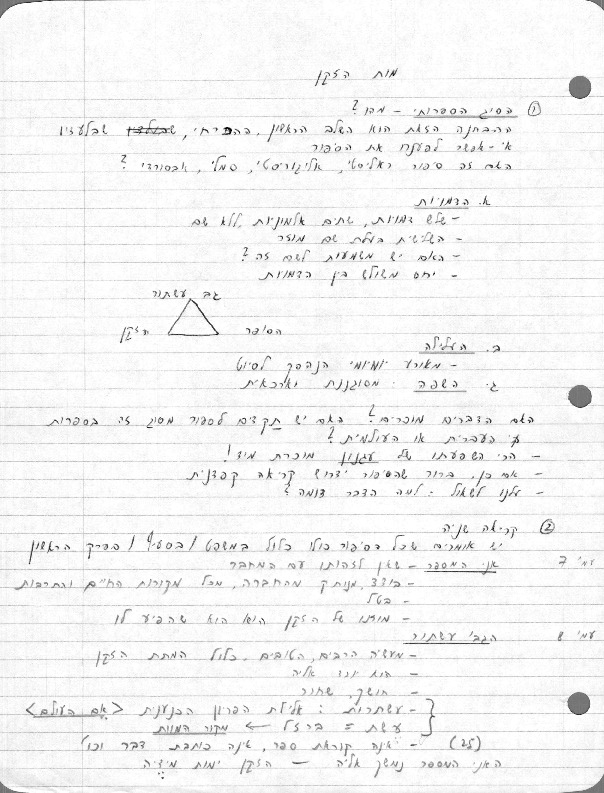 מות הזקן
① הסיג הספרותי – מהו?
ההבחנה הזאת הוא השלב הראשון, ההכרחי, שבלעדיו
אי-אפשר לפענח את הסיפור
האם זה סיפור ריאליסטי, אליגוריסטי, סמלי, אבסורדי?
א. הדמויות
– שלש דמויות, שתים אלמוניות, ללא שם
– השלישית בעלת שם מוזר
– האם יש משמעות לשם זה?
– יחס משולש בין הדמויות
גב' עשתור
הסופר הזקן
ב. העלילה
– מאורע יומיומי הנהפך לסיוט
ג. השפה: מסוגננת וארכאית
האם הדברים מוכרים? האם יש תקדים לספור מסוג זה בספרות
העברית או העולמית?
– הרי השפעתו של עגנון מוכרת מיד!
– אם כן, ברור שהסיפור ידרוש קריאה קפדנית
– עלנו לשאול: למה הדבר דומה?
② קריאה שניה
יש אומרים שכל הסיפור כולו כלול במשפט / בסעיף / בפרק הראשון
עמ' 7 אני המספר – שאין לזהותו עם המחבר
– בודד, מנותק מהחברה, מכל מקורות החיים והתרבות
– בטל
– מותו של הזקן הוא הוא שהפיע לו
עמ' 8 הגב' עשתור
– מעשיה הרבים, הטובים, כלול המתת הזקן
– הוא יורד אליה
– חושך, שחור
– עשתרות: אלילת הפריון הכנענית <אם העולם>
עשת = ברזל ← מקור המוות
(לב) – אינה קוראת ספר, אינה כותבת דבר וכו'
האני המספר נמשך אליה – הזקן ימות מידיה